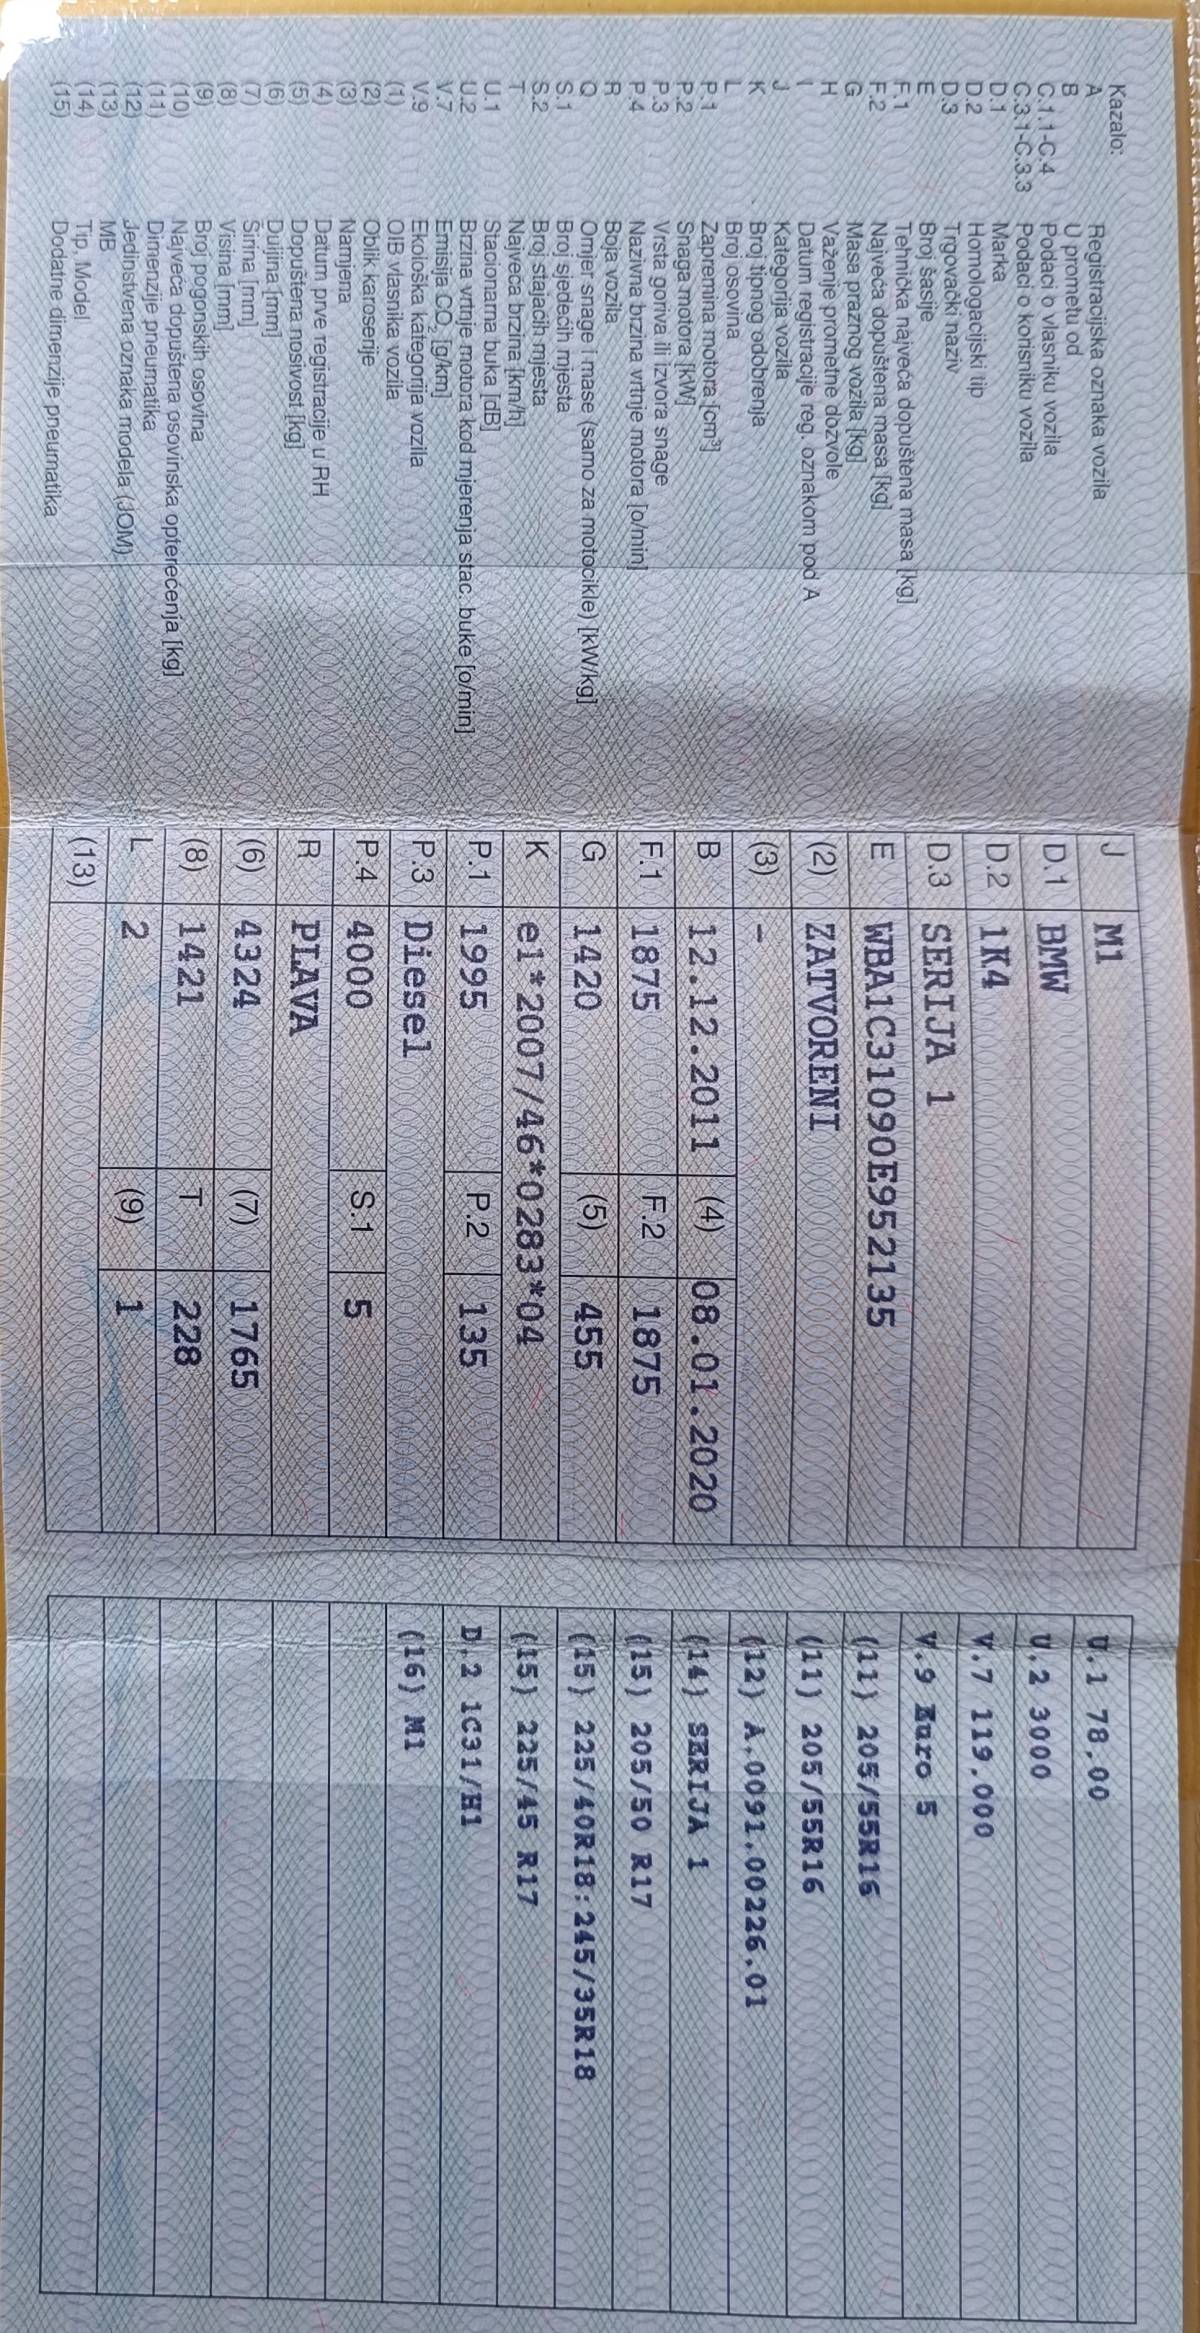 Kazalo:
A Registracijska oznaka vozila
B U prometu od
C.1.1-C.4 Podaci o vlasniku vozila
C.3.1-C.3.3 Podaci o korisniku vozila
D.1 Marka
D.2 Homologacijski tip
D.3 Trgovački naziv
E Broj šasije
F.1 Tehnička najveća dopuštena masa [kg]
F.2 Najveća dopuštena masa [kg]
G Masa praznog vozila [kg]
H Važenje prometne dozvole
I Datum registracije reg. oznakom pod A
J Kategorija vozila
K Broj tipnog odobrenja
L Broj osovina
P.1 Zapremina motora [cm³]
P.2 Snaga motora [kW]
P.3 Vrsta goriva ili izvora snage
P.4 Nazivna brzina vrtnje motora [o/min]
R Boja vozila
Q Omjer snage i mase (samo za motocikle) [kW/kg]
S.1 Broj sjedećih mjesta
S.2 Broj stajaćih mjesta
T Najveća brzina [km/h]
U.1 Stacionarna buka [dB]
U.2 Brzina vrtnje motora kod mjerenja stac. buke [o/min]
V.7 Emisija CO₂ [g/km]
V.9 Ekološka kategorija vozila
(1) OIB vlasnika vozila
(2) Oblik karoserije
(3) Namjena
(4) Datum prve registracije u RH
(5) Dopuštena nosivost [kg]
(6) Duljina [mm]
(7) Širina [mm]
(8) Visina [mm]
(9) Broj pogonskih osovina
(10) Najveća dopuštena osovinska opterećenja [kg]
(11) Dimenzije pneumatika
(12) Jedinstvena oznaka modela (JOM)
(13) MB
(14) Tip, Model
(15) Dodatne dimenzije pneumatika
J M1
D.1 BMW
D.2 1K4
D.3 SERIJA 1
E WBA1C31090E952135
(2) ZATVORENI
(3) -
B 12.12.2011 (4) 08.01.2020
F.1 1875 F.2 1875
G 1420 (5) 455
K e1*2007/46*0283*04
P.1 1995 P.2 135
P.3 Diesel
P.4 4000 S.1 5
R PLAVA
(6) 4324 (7) 1765
(8) 1421 T 228
L 2 (9) 1
(13)
U.1 78.00
U.2 3000
V.7 119.000
V.9 Euro 5
(11) 205/55R16
(11) 205/55R16
(12) A.0091.00226.01
(14) SERIJA 1
(15) 205/50 R17
(15) 225/40R18:245/35R18
(15) 225/45 R17
D.2 1C31/H1
(16) M1